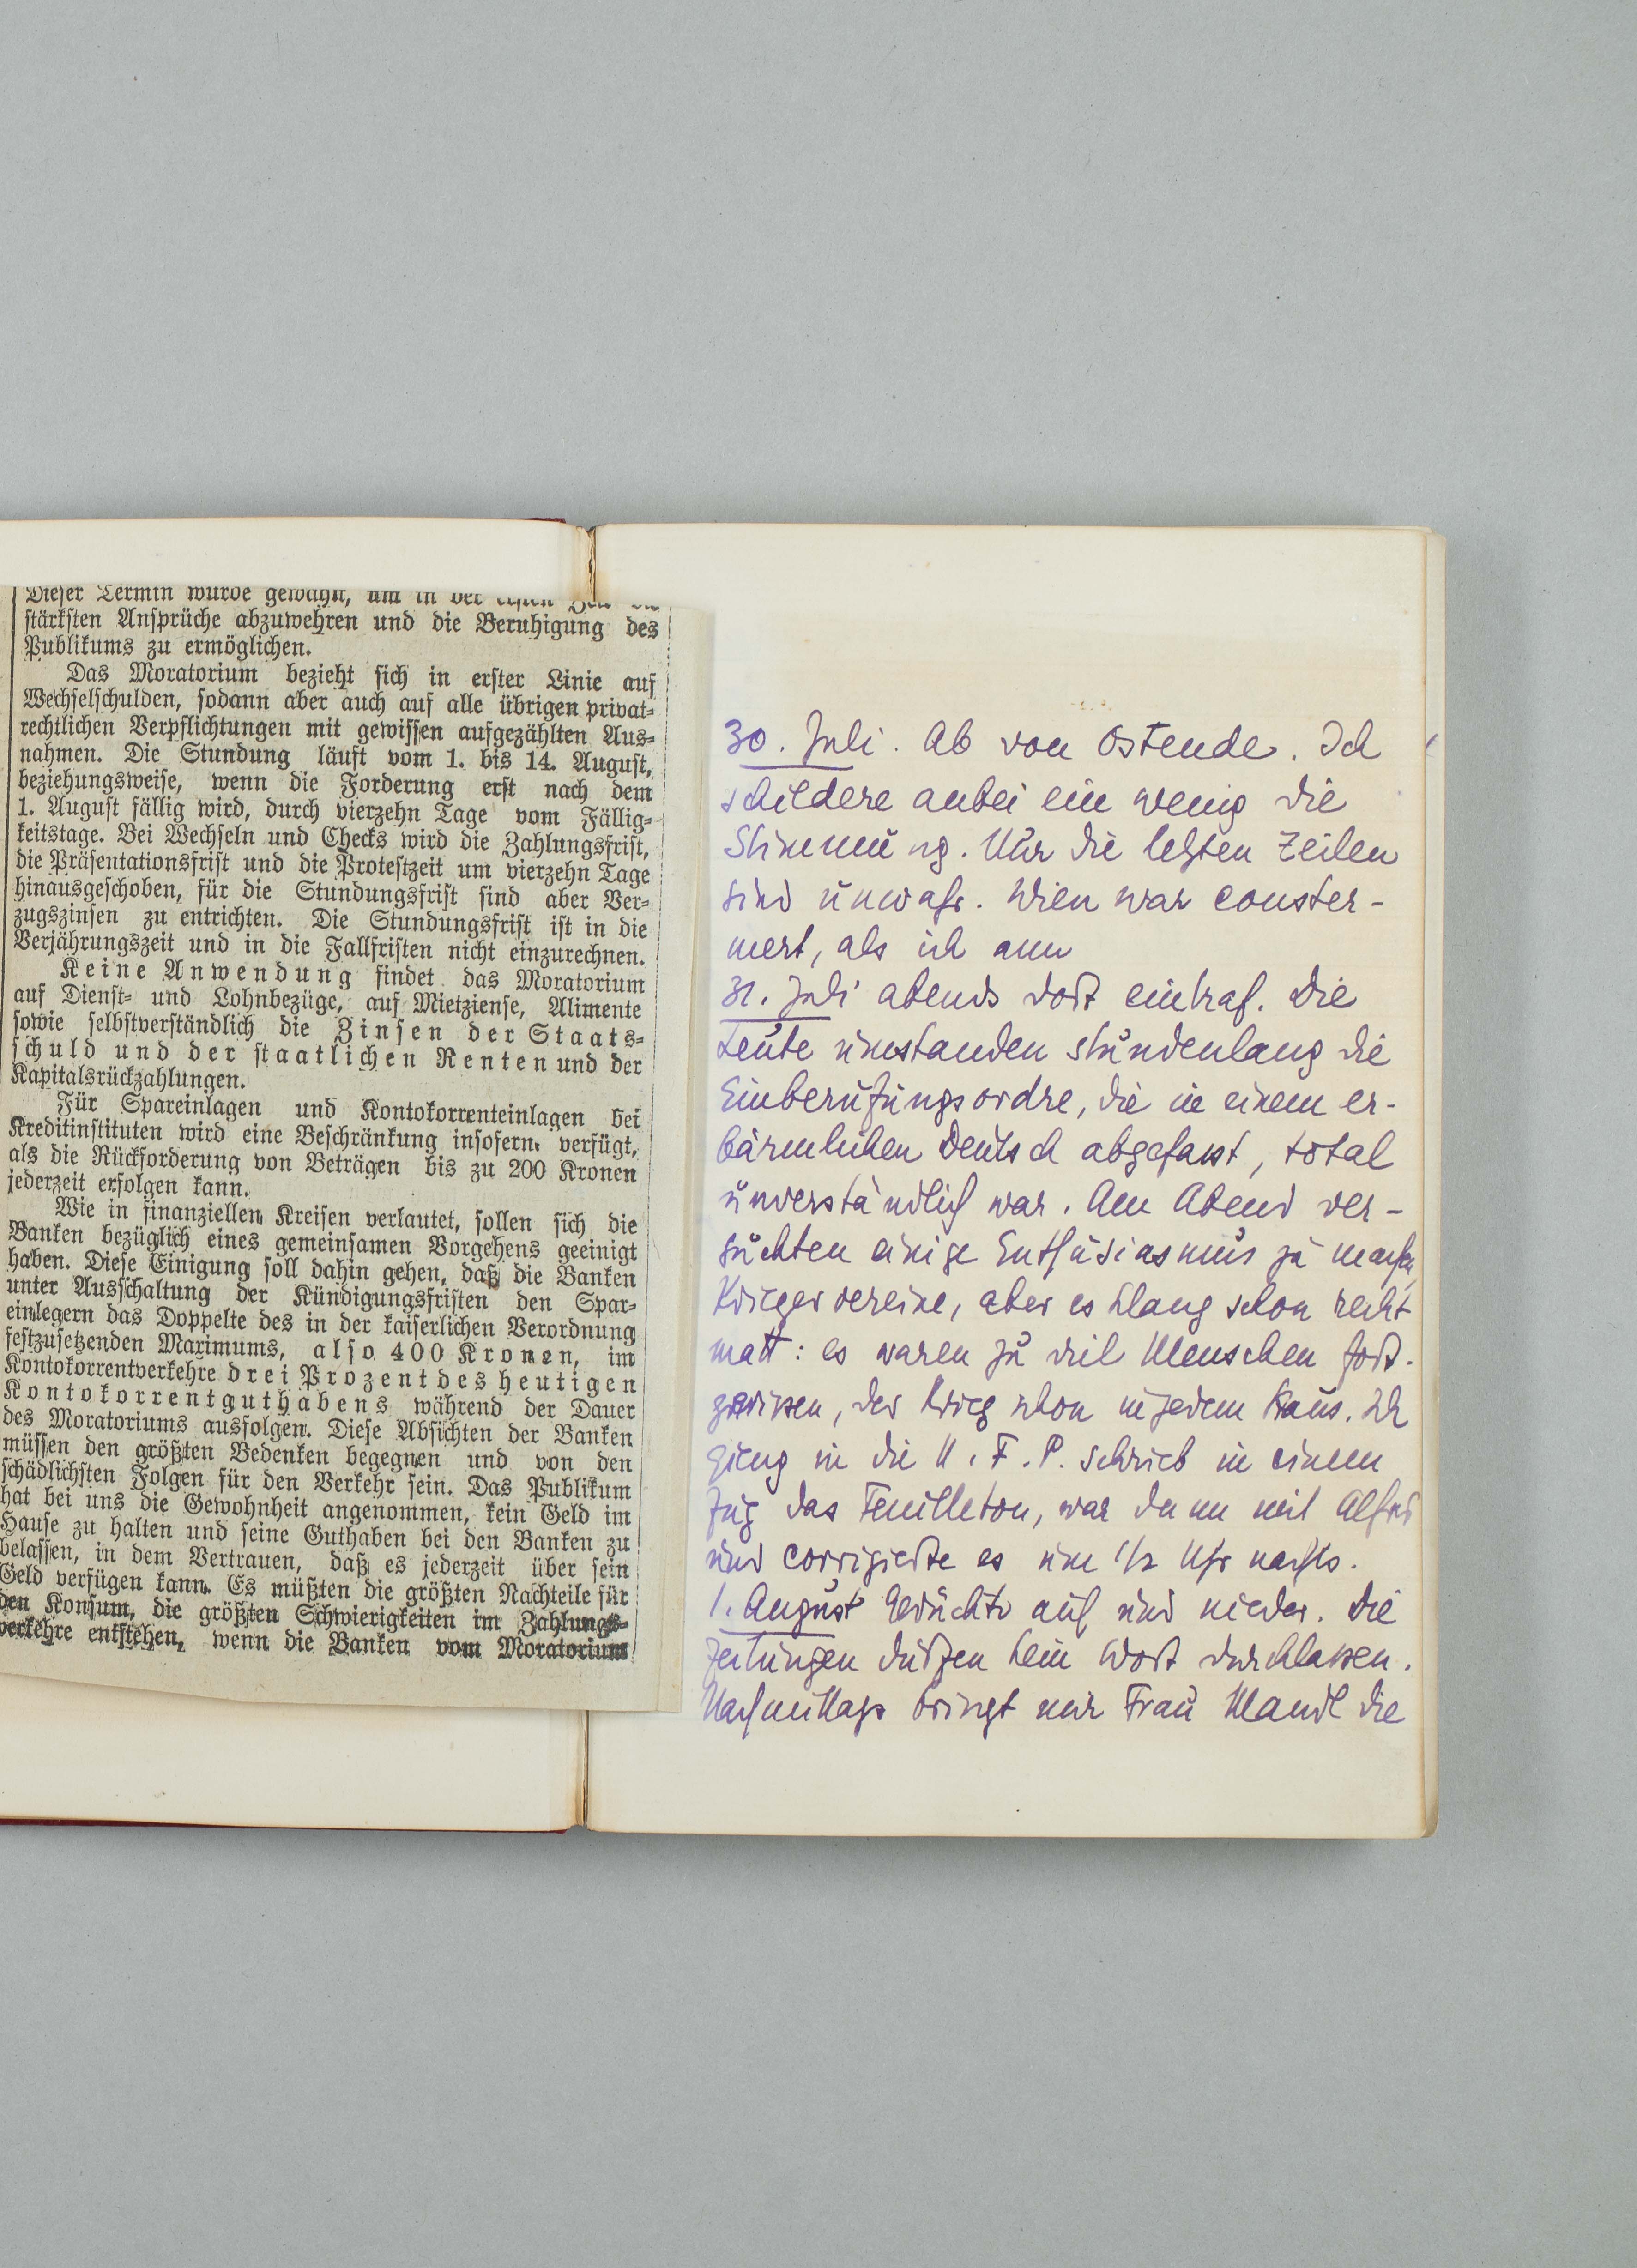 Dieser Termin wurde gewählt, um in der ersten Zeit die
stärksten Ansprüche abzuwehren und die Beruhigung des
Publikums zu ermöglichen.
Das Moratorium bezieht sich in erster Linie auf
Wechselschulden, sodann aber auch auf alle übrigen privat-
rechtlichen Verpflichtungen mit gewissen aufgezählten Aus-
nahmen. Die Stundung läuft vom 1. bis 14. August,
beziehungsweise, wenn die Forderung erst nach dem
1. August fällig wird, durch vierzehn Tage vom Fällig-
keitstage. Bei Wechseln und Checks wird die Zahlungsfrist,
die Präsentationsfrist und die Protestzeit um vierzehn Tage
hinausgeschoben, für die Stundungsfrist sind aber Ver-
zugszinsen zu entrichten. Die Stundungsfrist ist in die
Verjährungszeit und in die Fallfristen nicht einzurechnen.
Keine Anwendung findet das Moratorium
auf Dienst- und Lohnbezüge, auf Mietziense, Alimente
sowie selbstverständlich die Zinsen der Staats-
schuld und der staatlichen Renten und der
Kapitalsrückzahlungen.
Für Spareinlagen und Kontokorrenteinlagen bei
Kreditinstituten wird eine Beschränkung insofern verfügt,
als die Rückforderung von Beträgen bis zu 200 Kronen
jederzeit erfolgen kann.
Wie in finanziellen Kreisen verlautet, sollen sich die
Banken bezüglich eines gemeinsamen Vorgehens geeinigt
haben. Diese Einigung soll dahin gehen, daß die Banken
unter Ausschaltung der Kündigungsfristen den Spar-
einlegern das Doppelte des in der kaiserlichen Verordnung
festzusetzenden Maximums, also 400 Kronen, im
Kontokorrentverkehre drei Prozent des heutigen
Kontokorrentguthabens während der Dauer
des Moratoriums ausfolgen. Diese Absichten der Banken
müssen den größten Bedenken begegnen und von den
schädlichsten Folgen für den Verkehr sein. Das Publikum
hat bei uns die Gewohnheit angenommen, kein Geld im
Hause zu halten und seine Guthaben bei den Banken zu
belassen, in dem Vertrauen, daß es jederzeit über sein
Geld verfügen kann. Es müßten die größten Nachteile für
den Konsum, die größten Schwierigkeiten im Zahlungs-
verkehre entstehen, wenn die Banken vom Moratorium
30. Juli. Ab von Ostende. Ich
schildere anbei ein wenig die
Stimmung. Nur die letzten Zeilen
sind unwahr. Wien war conster-
niert, als ich am
31. Juli abends dort eintraf. Die
Leute umstanden stundenlang die
Einberufungsordre, die in einem er-
bärmlichen Deutsch abgefasst, total
unverständlich war. Am Abend ver-
suchten einige Enthusiasmus zu machen,
Kriegervereine, aber es klang schon recht
matt: es waren zu viel Menschen fort-
gerissen, der Krieg schon in jedem Haus. Ich
gieng in die N. F. P. schrieb in einem
Zug das Feuilleton, war dann mit Alfred
und corrigierte es um 1/2 Uhr nachts.
1. August Gerüchte auf und nieder. Die
Zeitungen dürfen kein Wort durchlassen.
Nachmittags bringt mir Frau Mandl die